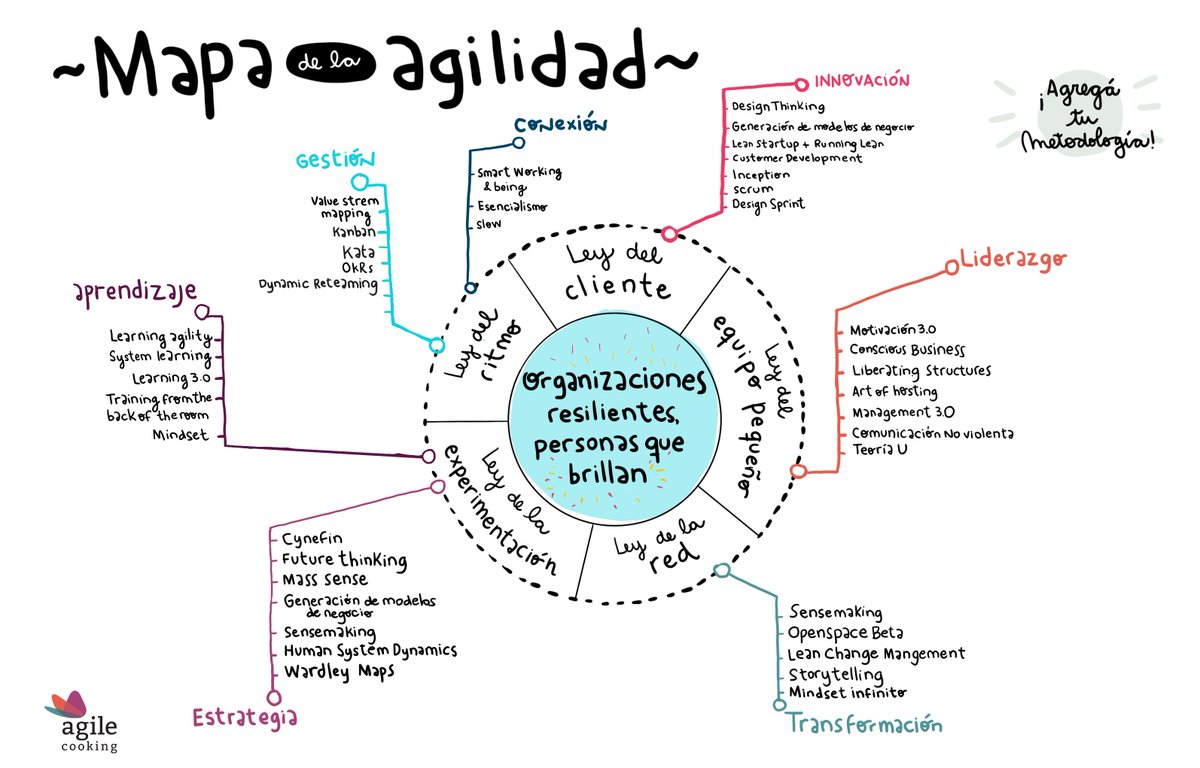 ~Mapa de la agilidad~
¡Agregá
tu
metodología!
INNOVACIÓN
Design Thinking
Generación de modelos de negocio
Lean Startup + Running Lean
Customer Development
Inception
scrum
Design Sprint
Conexión
Smart Working
& being
Esencialismo
Slow
Gestión
Value strem
mapping
Kanban
Kata
OKRs
Dynamic Reteaming
aprendizaje
Learning agility
System learning
Learning 3.0
Training from the
back of the room
Mindset
Liderazgo
Motivación 3.0
Conscious Business
Liberating Structures
Art of hosting
Management 3.0
Comunicación No violenta
Teoría U
Ley del
cliente
Ley del
equipo pequeño
Ley de la
red
Ley de la
experimentación
Ley del
ritmo
organizaciones
resilientes,
personas que
brillan
Cynefin
Future thinking
Mass sense
Generación de modelos
de negocio
Sensemaking
Human System Dynamics
Wardley Maps
Estrategia
Sensemaking
Openspace Beta
Lean Change Mangement
Storytelling
Mindset infinito
Transformación
agile
cooking